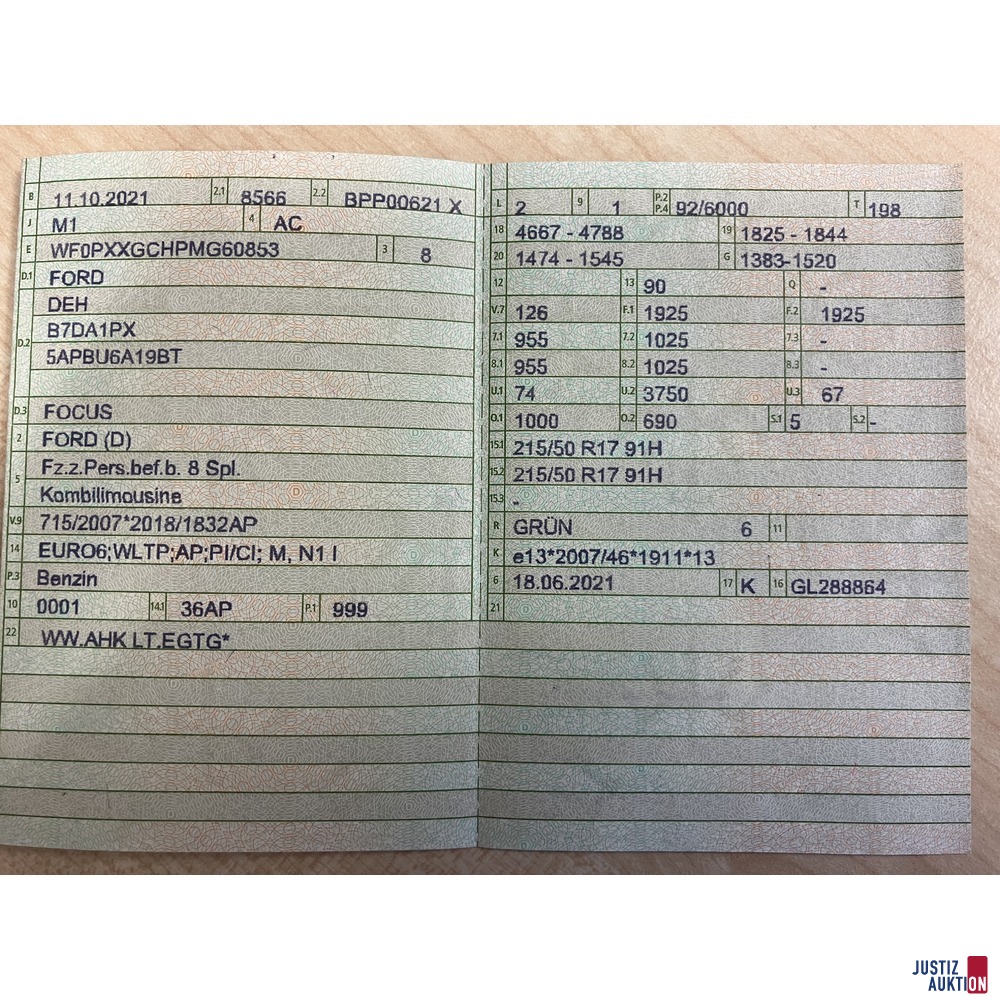 B 11.10.2021 2.1 8566 2.2 BPP00621 X
J M1 4 AC
E WF0PXXGCHPMG60853 3 8
D.1 FORD
DEH
D.2 B7DA1PX
5APBU6A19BT
D.3 FOCUS
2 FORD (D)
5 Fz.z.Pers.bef.b. 8 Spl.
Kombilimousine
V.9 715/2007*2018/1832AP
14 EURO6;WLTP;AP;PI/CI; M, N1 I
P.3 Benzin
10 0001 14.1 36AP P.1 999
22 WW.AHK LT.EGTG*
L 2 9 1 P.2 P.4 92/6000 T 198
18 4667 - 4788 19 1825 - 1844
20 1474 - 1545 G 1383-1520
12 13 90 Q -
V.7 126 F.1 1925 F.2 1925
7.1 955 7.2 1025 7.3 -
8.1 955 8.2 1025 8.3 -
U.1 74 U.2 3750 U.3 67
O.1 1000 O.2 690 S.1 5 S.2 -
15.1 215/50 R17 91H
15.2 215/50 R17 91H
15.3 -
R GRÜN 6 11
K e13*2007/46*1911*13
6 18.06.2021 17 K 16 GL288864
21
JUSTIZ
AUKTION